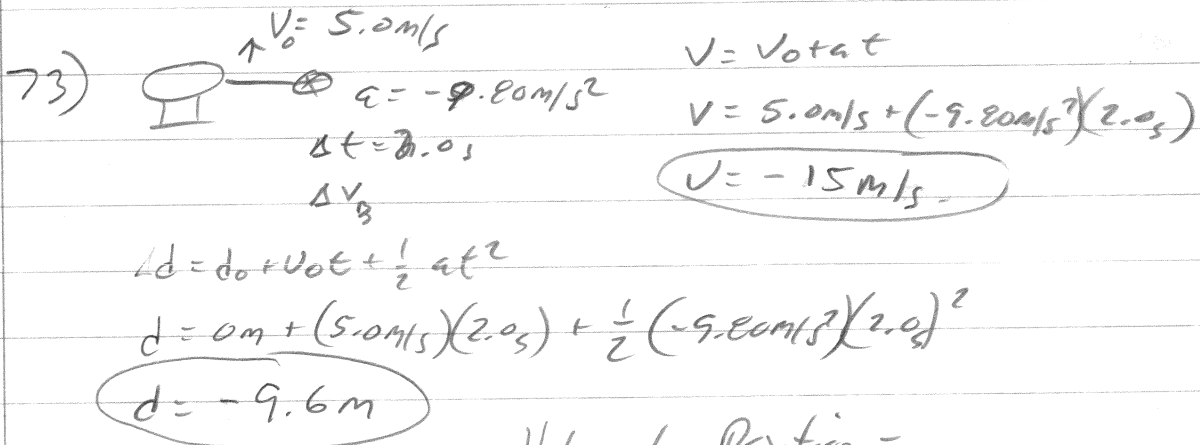 73)
V₀= 5.0m/s
a = -9.80m/s²
Δt = 2.0s
ΔVB
V = V₀+at
V = 5.0m/s + (-9.80m/s²)(2.0s)
V = -15m/s
Δd = d₀ + V₀t + 1/2 at²
d = 0m + (5.0m/s)(2.0s) + 1/2 (-9.80m/s²)(2.0s)²
d = -9.6m